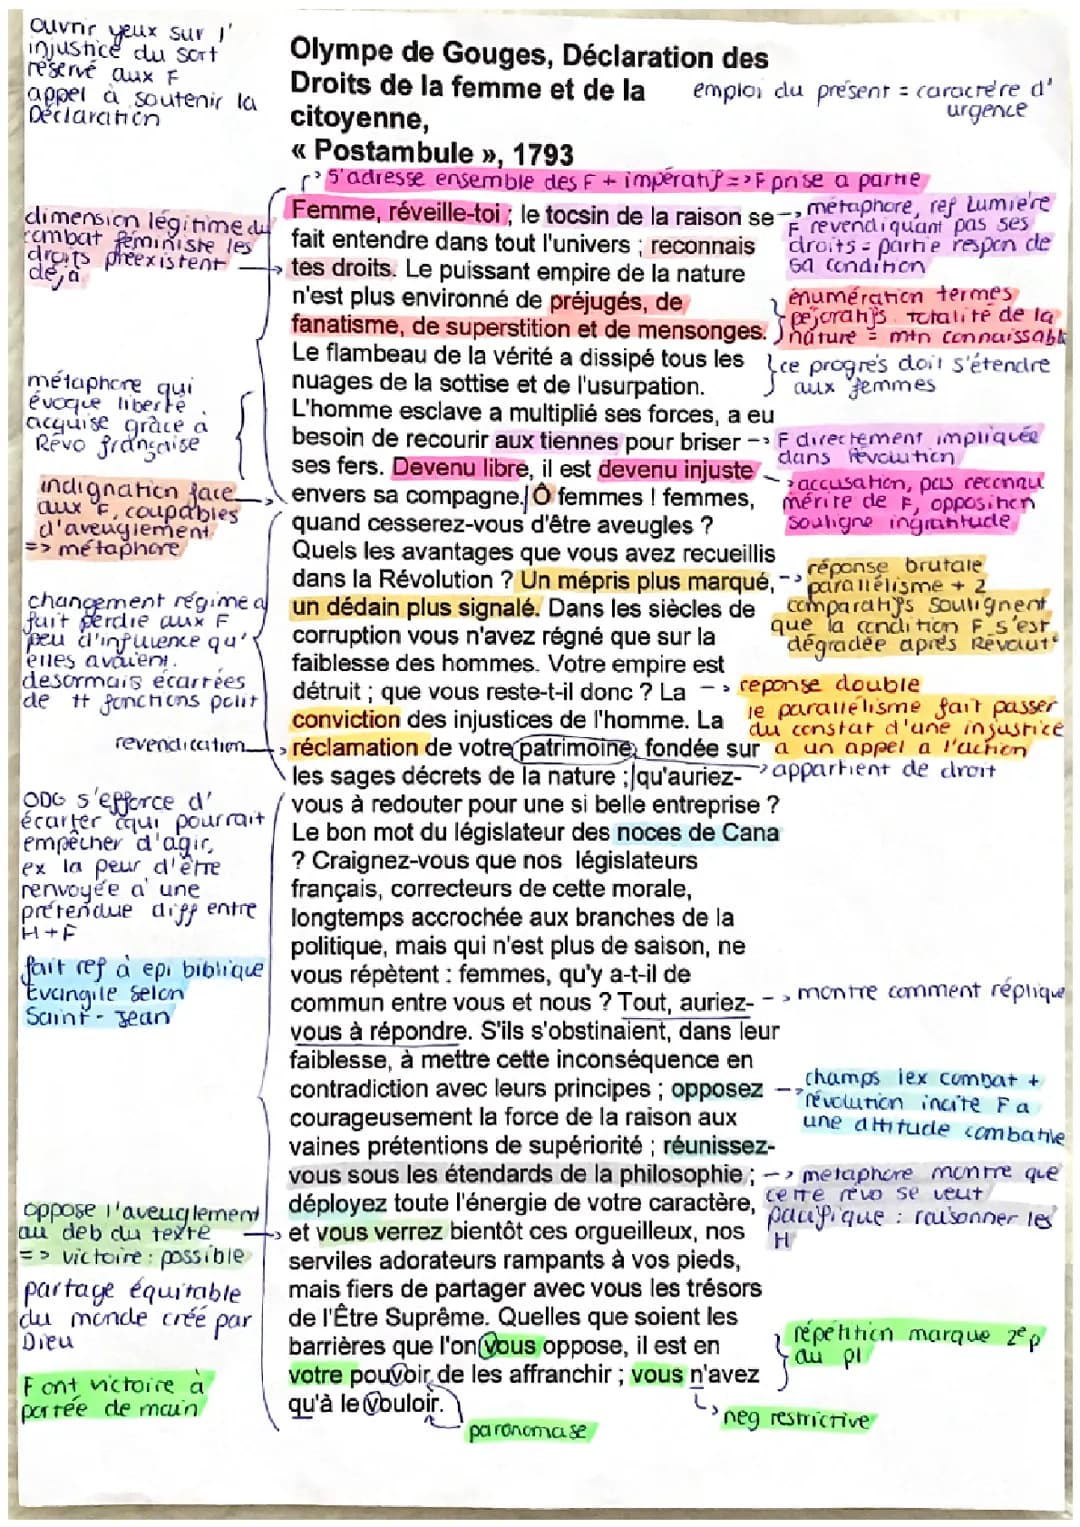 ouvrir yeux sur l'
injustice du sort
réservé aux F
appel à soutenir la
Déclaration
Olympe de Gouges, Déclaration des
Droits de la femme et de la
citoyenne,
« Postambule », 1793
emploi du présent = caractère d'
urgence
s'adresse ensemble des F + impératif => F prise a partie
Femme, réveille-toi ; le tocsin de la raison se
fait entendre dans tout l'univers ; reconnais
tes droits. Le puissant empire de la nature
n'est plus environné de préjugés, de
fanatisme, de superstition et de mensonges.
Le flambeau de la vérité a dissipé tous les
nuages de la sottise et de l'usurpation.
L'homme esclave a multiplié ses forces, a eu
besoin de recourir aux tiennes pour briser
ses fers. Devenu libre, il est devenu injuste
envers sa compagne. Ô femmes ! femmes,
quand cesserez-vous d'être aveugles ?
Quels les avantages que vous avez recueillis
dans la Révolution ? Un mépris plus marqué,
un dédain plus signalé. Dans les siècles de
corruption vous n'avez régné que sur la
faiblesse des hommes. Votre empire est
détruit ; que vous reste-t-il donc ? La
conviction des injustices de l'homme. La
réclamation de votre patrimoine, fondée sur
les sages décrets de la nature ; qu'auriez-
vous à redouter pour une si belle entreprise ?
Le bon mot du législateur des noces de Cana
? Craignez-vous que nos législateurs
français, correcteurs de cette morale,
longtemps accrochée aux branches de la
politique, mais qui n'est plus de saison, ne
vous répètent : femmes, qu'y a-t-il de
commun entre vous et nous ? Tout, auriez-
vous à répondre. S'ils s'obstinaient, dans leur
faiblesse, à mettre cette inconséquence en
contradiction avec leurs principes ; opposez
courageusement la force de la raison aux
vaines prétentions de supériorité ; réunissez-
vous sous les étendards de la philosophie ;
déployez toute l'énergie de votre caractère,
et vous verrez bientôt ces orgueilleux, nos
serviles adorateurs rampants à vos pieds,
mais fiers de partager avec vous les trésors
de l'Être Suprême. Quelles que soient les
barrières que l'on vous oppose, il est en
votre pouvoir de les affranchir ; vous n'avez
qu'à le vouloir.
dimension légitime du
combat féministe les
droits préexistent
déjà
métaphore qui
évoque liberté
acquise grâce a
Révo française
indignation face
aux F, coupables
d'aveuglement
=> métaphore
changement régime a
fait perdre aux F
peu d'influence qu'
elles avaient.
desormais écartées
de tt fonctions polit
revendication
ODG s'efforce d'
écarter cqui pourrait
empêcher d'agir,
ex la peur d'être
renvoyée a une
prétendue diff entre
H+F
fait ref à epi biblique
Evangile selon
Saint-Jean
oppose l'aveuglement
au deb du texte
=> victoire : possible
partage équitable
du monde créé par
Dieu
F ont victoire à
portée de main
métaphore, ref Lumière
F revendiquant pas ses
droits = partie respon de
sa condition
énumération termes
péjoratifs totalité de la
nature = mtn connaissable
ce progrès doit s'étendre
aux femmes
F directement impliquée
dans révolution
accusation, pas reconnu
mérite de F, opposition
souligne ingratitude
réponse brutale
parallélisme + 2
comparatifs soulignent
que la condition F s'est
dégradée après Révolut°
reponse double
le parallélisme fait passer
du constat d'une injustice
a un appel a l'action
appartient de droit
montre comment réplique
champs lex combat +
révolution incite F a
une attitude combative
métaphore montre que
cette révo se veut
pacifique : raisonner les
H
répétition marque 2e p
au pl
neg restrictive
paronomase